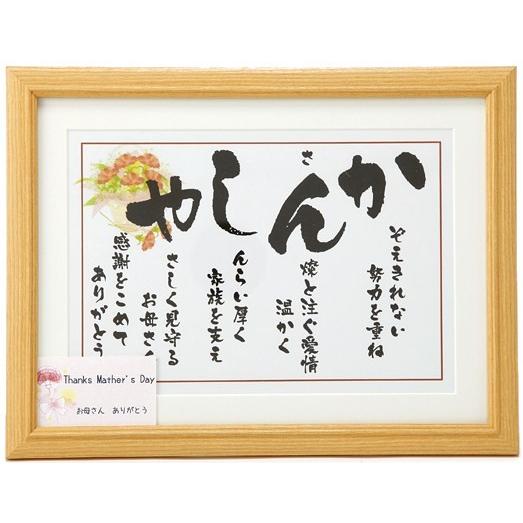 か
ぞえきれない
努力を重ね
さ
ん
燦と注ぐ愛情
温かく
し
んらい厚く
家族を支え
や
さしく見守る
お母さん
感謝をこめて
ありがとう
Thanks Mather's Day
お母さん　ありがとう